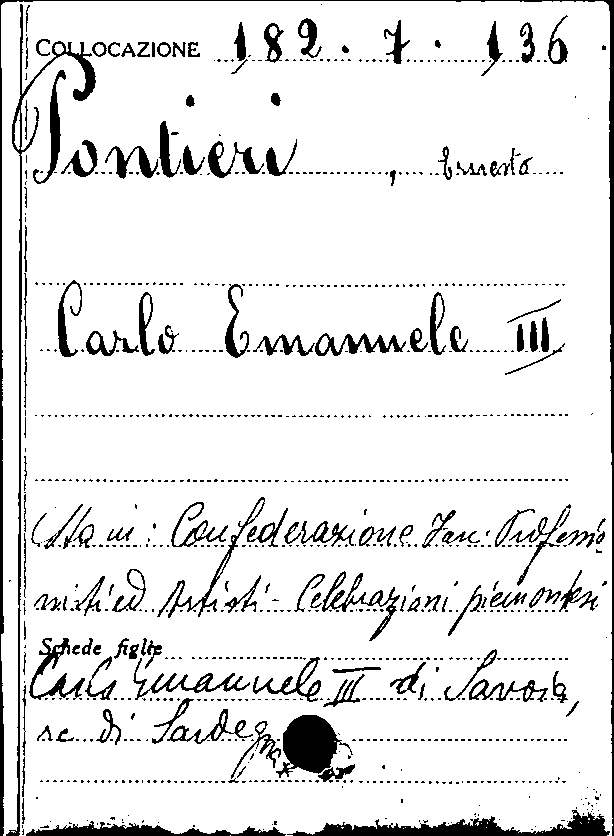 COLLOCAZIONE 182 . 7 . 136
Pontieri , Ernesto
Carlo Emanuele III
(Sta in: Confederazione Fasc. Professio
nisti ed Artisti - Celebrazioni piemontesi
Schede figlie
Carlo Emanuele III di Savoia,
re di Sardegna